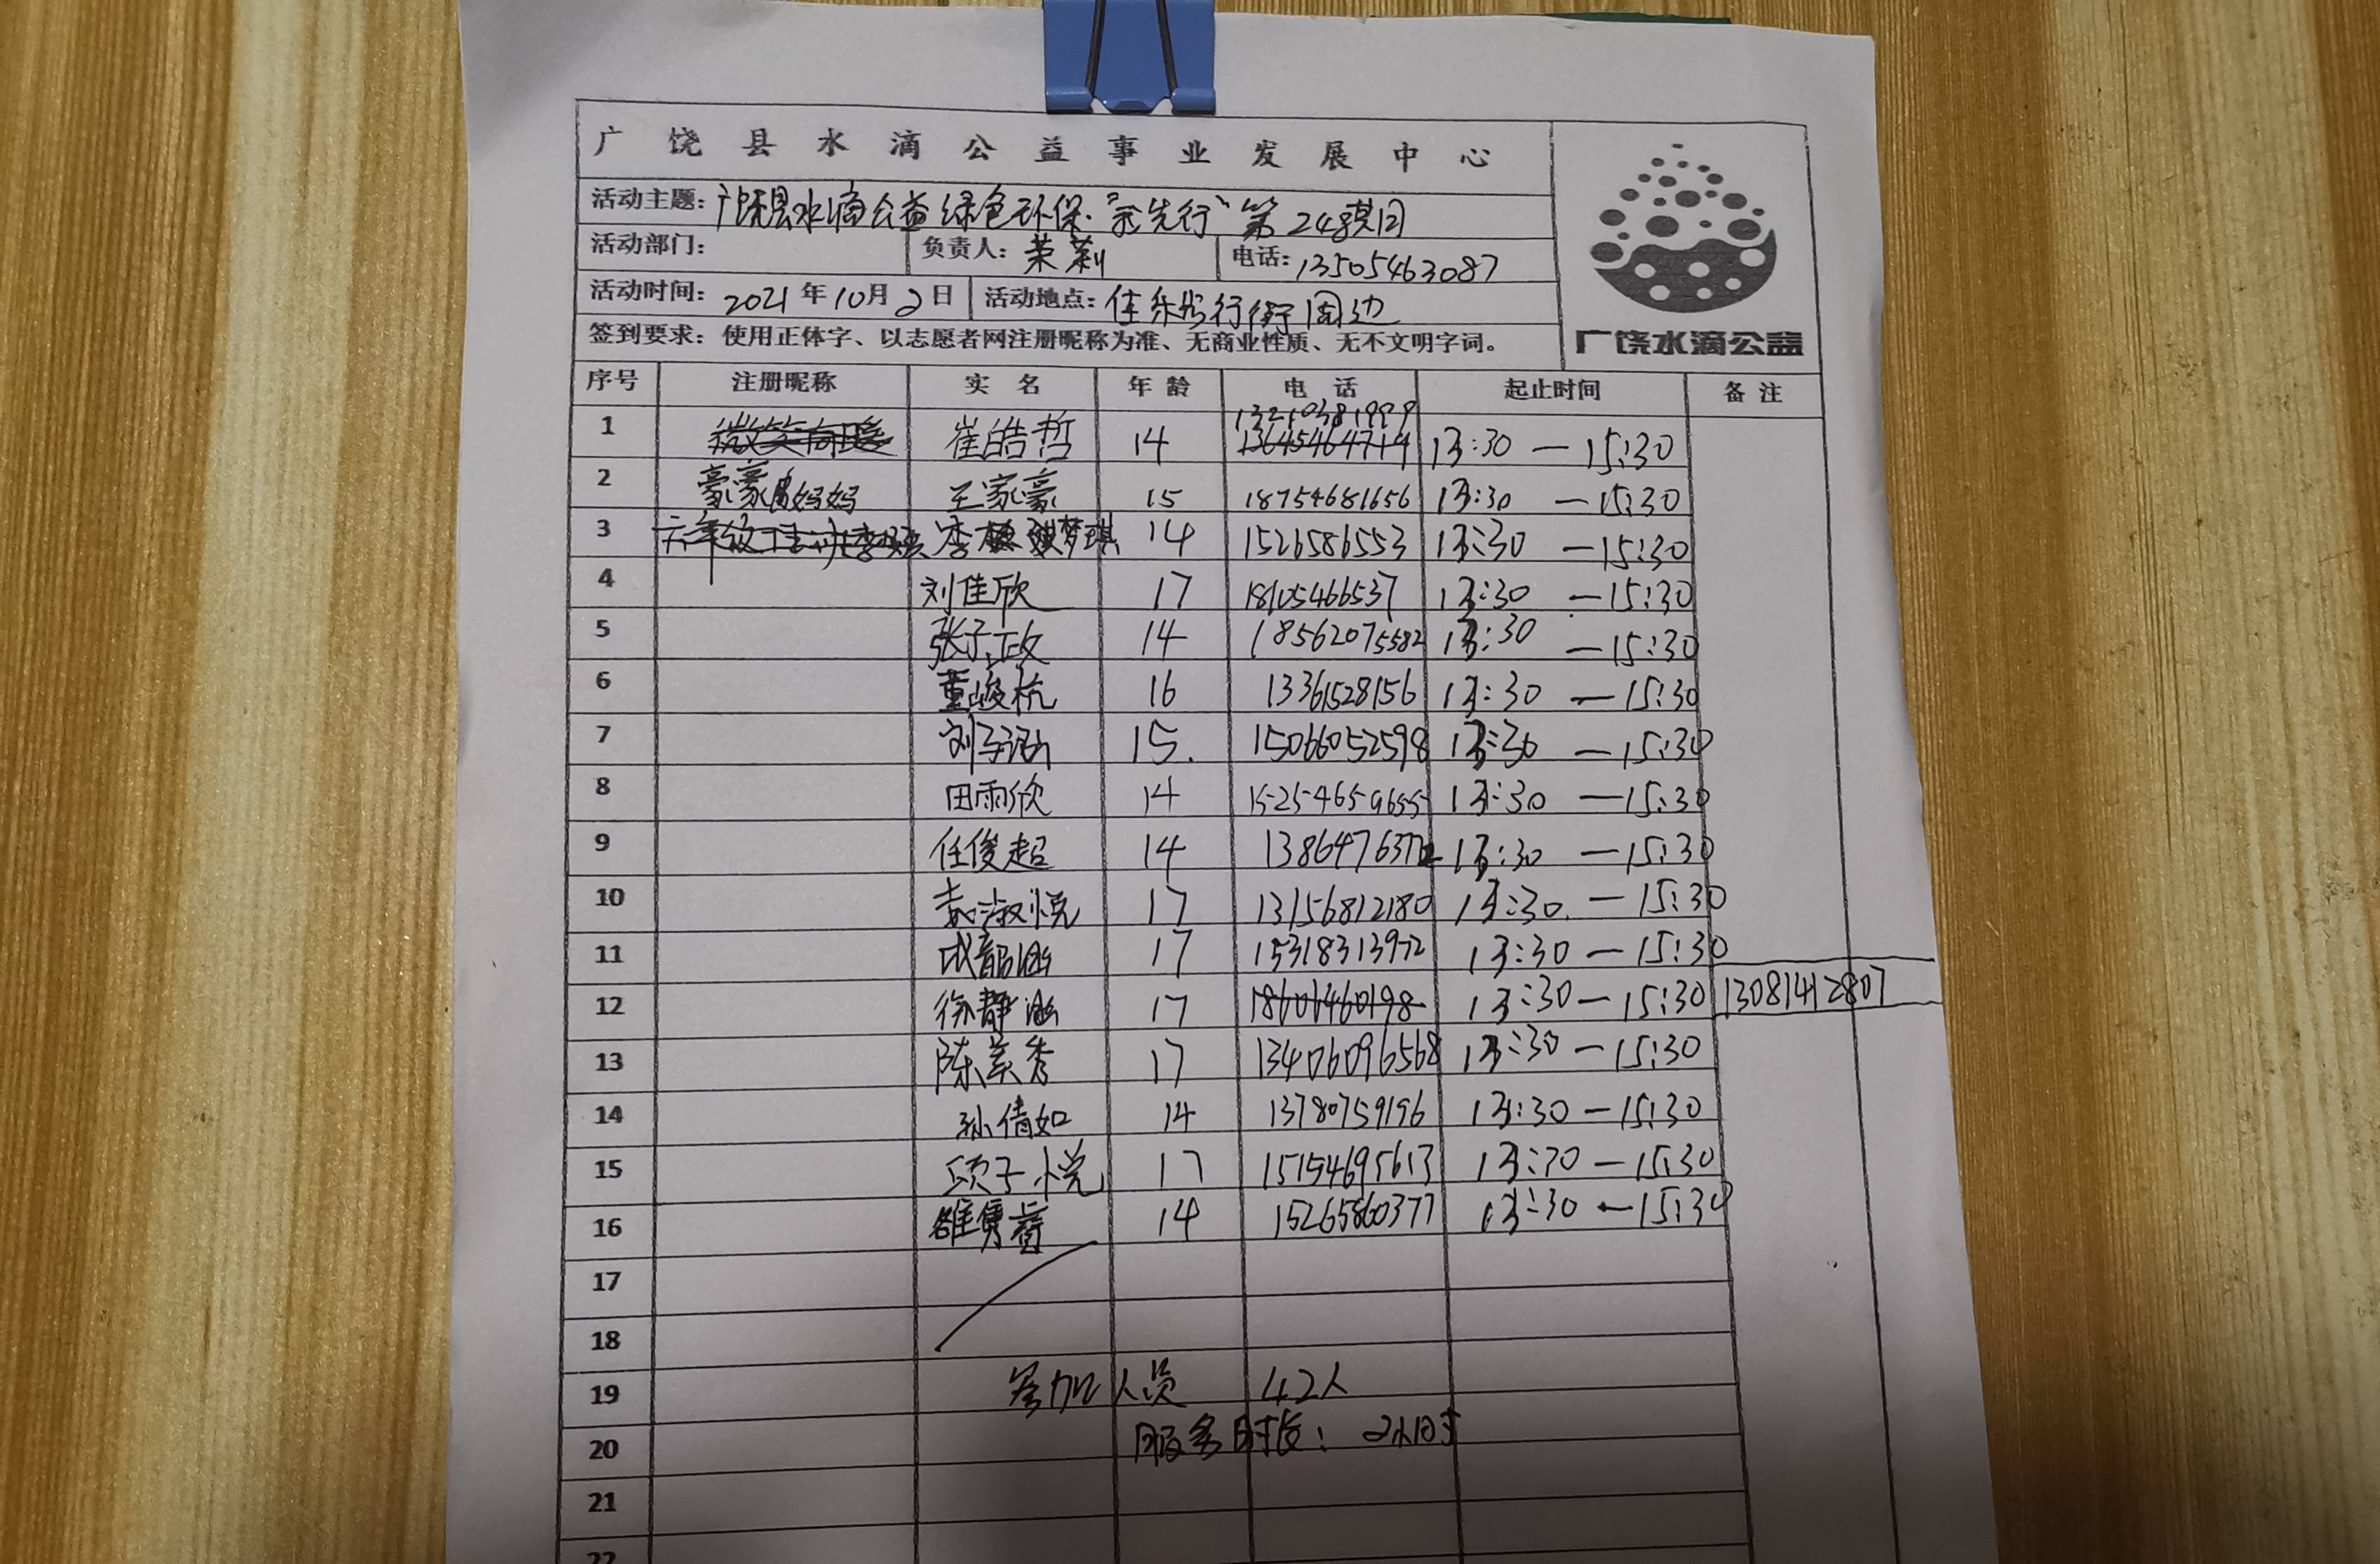 广饶县水滴公益事业发展中心
活动主题：广饶县水滴公益绿色环保"我先行"第248期
活动部门： 负责人：茉莉 电话：13505463087
活动时间：2021年10月2日 活动地点：行街周边
签到要求：使用正体字、以志愿者网注册昵称为准、无商业性质、无不文明字词。
广饶水滴公益
序号 注册昵称 实名 年龄 电话 起止时间 备注
13210381999
1 微笑向暖 崔皓哲 14 13645464714 13:30 — 15:30
2 豪豪妈妈 王家豪 15 18754681656 13:30 — 15:30
3 六年级 梦琪 14 1526586553 13:30 — 15:30
4 刘佳欣 17 18105466537 13:30 — 15:30
5 张子政 14 18562075582 13:30 — 15:30
6 董峻杭 16 13361528156 13:30 — 15:30
7 刘子涵 15. 15066052598 13:30 — 15:30
8 田雨欣 14 15254659655 13:30 — 15:30
9 任俊超 14 13864763772 13:30 — 15:30
10 袁淑悦 17 13156812180 13:30. — 15:30
11 成韶涵 17 15318313972 13:30 — 15:30
12 徐静涵 17 18606460198 13:30 — 15:30 13081412807
13 陈美秀 17 13406096568 13:30 — 15:30
14 孙倩如 14 13780759196 13:30 — 15:30
15 项子悦 17 15154695613 13:30 — 15:30
16 14 15265860377 13:30 — 15:30
17
18
19 参加人员 42人
20 服务时长：2小时
21
22